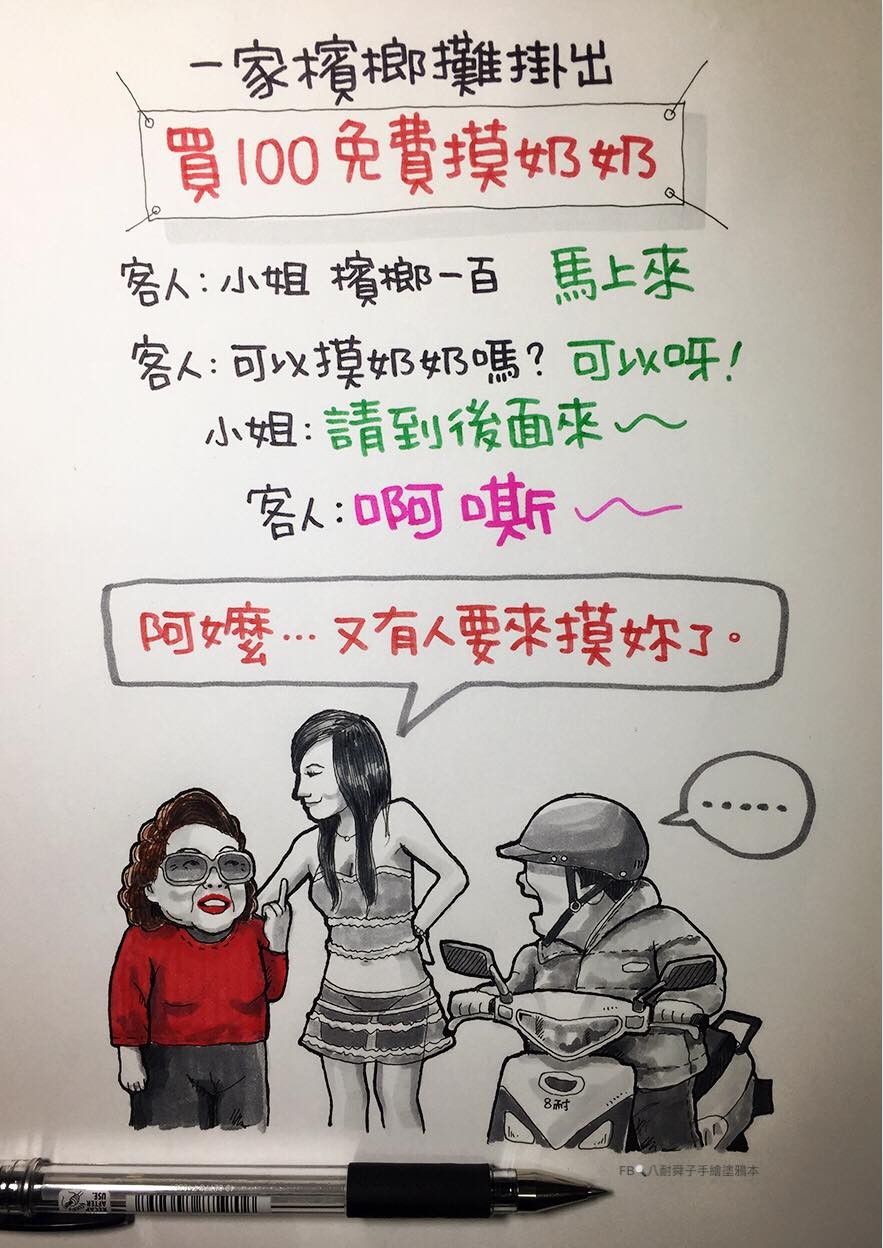 一家檳榔攤掛出
買100免費摸奶奶
客人：小姐 檳榔一百 馬上來
客人：可以摸奶奶嗎？ 可以呀！
小姐：請到後面來～
客人：啊嘶～
阿嬤…又有人要來摸妳了。
……
8耐
FB 八耐舜子手繪塗鴉本
RECAP AFTER USE